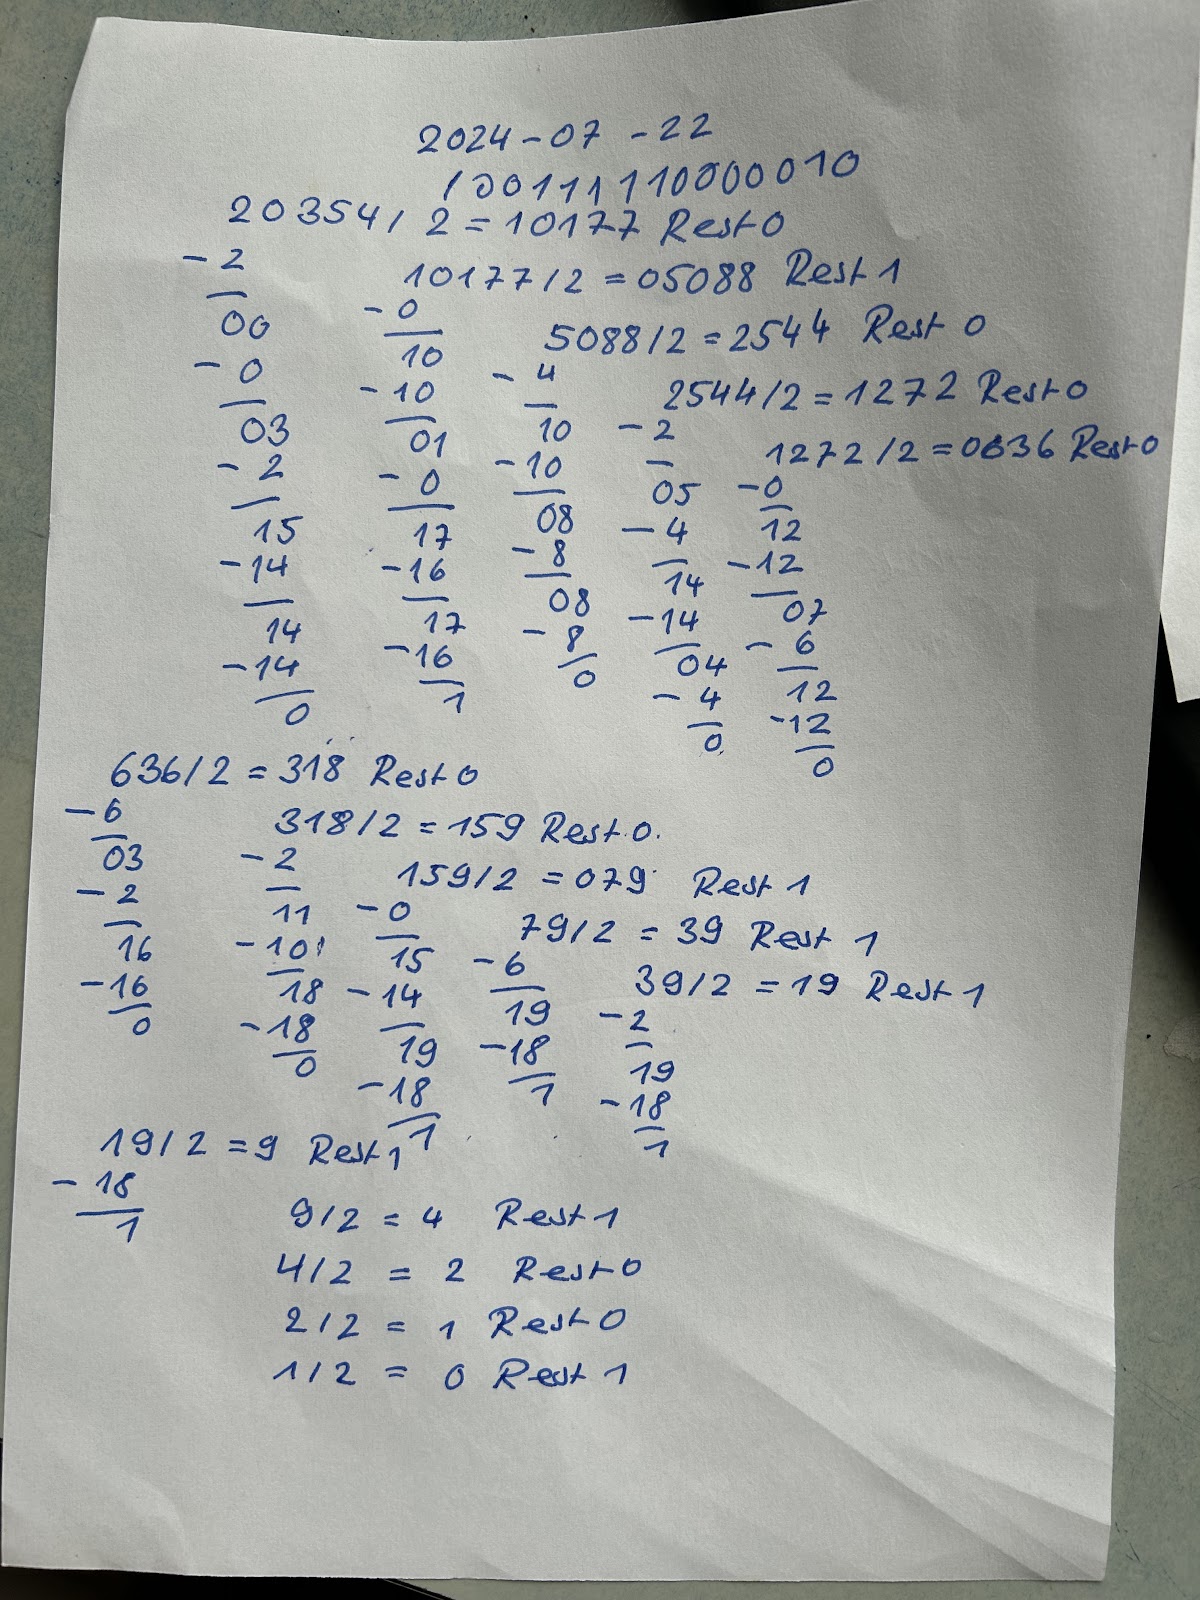 2024-07-22
100111110000010
20354/2=10177 Rest 0
- 2
00
- 0
03
- 2
15
- 14
14
- 14
0
10177/2=05088 Rest 1
- 0
10
- 10
01
- 0
17
- 16
17
- 16
1
5088/2=2544 Rest 0
- 4
10
- 10
08
- 8
08
- 8
0
2544/2=1272 Rest 0
- 2
05
- 4
14
- 14
04
- 4
0
1272/2=0636 Rest 0
- 0
12
- 12
07
- 6
12
- 12
0
636/2=318 Rest 0
- 6
03
- 2
16
- 16
0
318/2=159 Rest 0
- 2
11
- 10
18
- 18
0
159/2=079 Rest 1
- 0
15
- 14
19
- 18
1
79/2=39 Rest 1
- 6
19
- 18
1
39/2=19 Rest 1
- 2
19
- 18
1
19/2=9 Rest 1
- 18
1
9/2=4 Rest 1
4/2=2 Rest 0
2/2=1 Rest 0
1/2=0 Rest 1